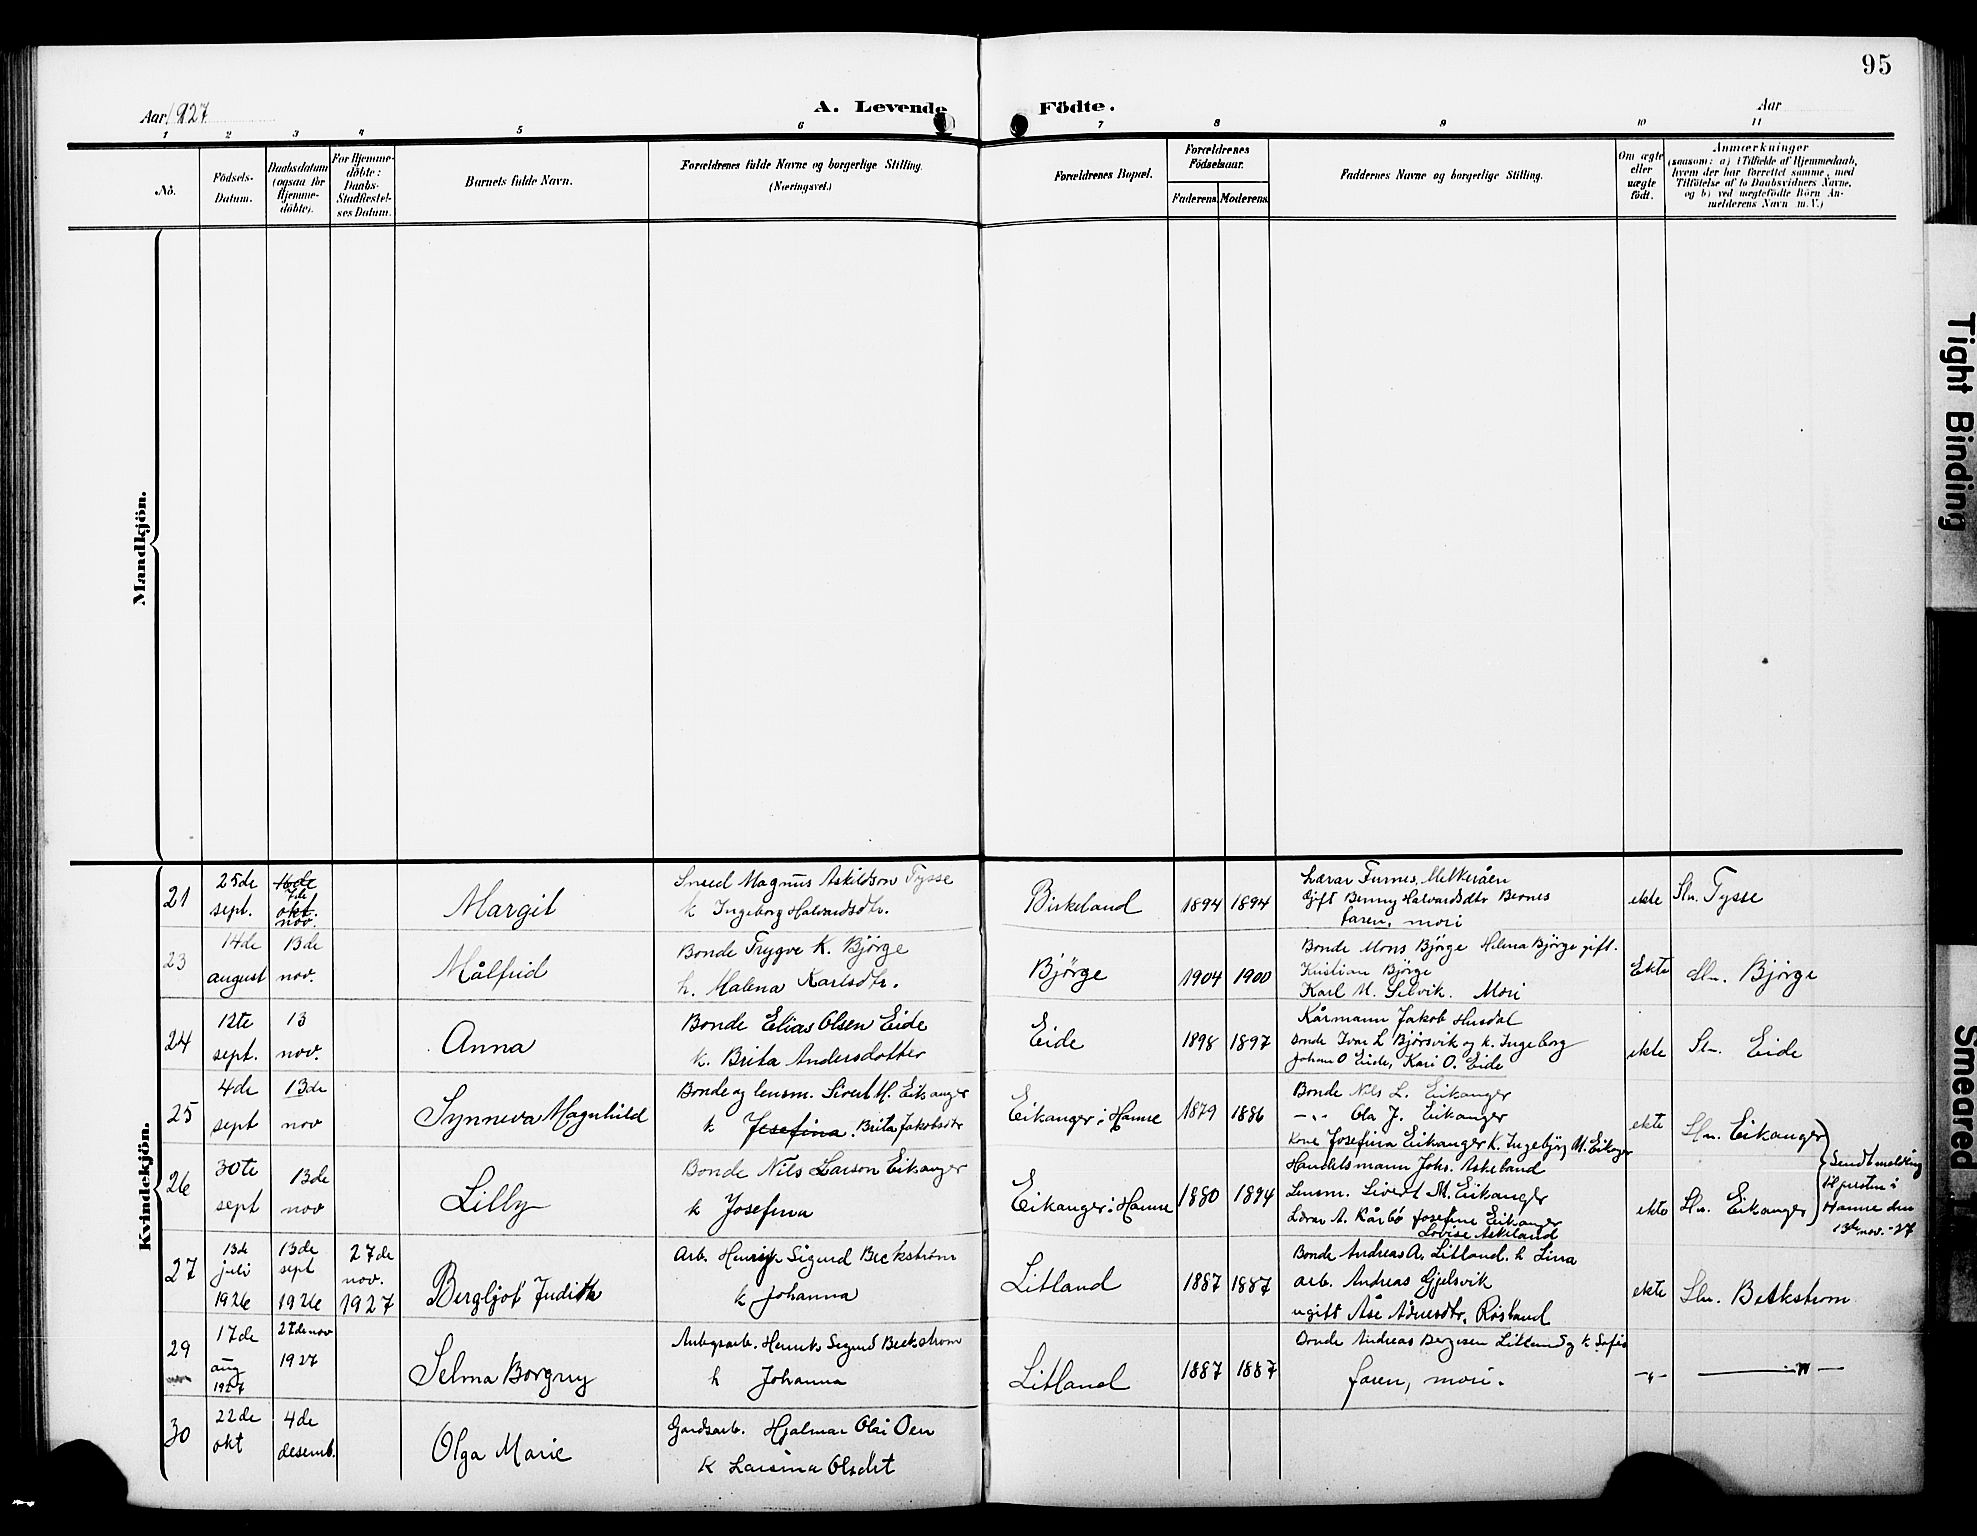 95
Aar 1927
A. Levende Födte.
Aar
1 2 3 4 5 6 7 8 9 10 11
No.
Födsels-Datum.
Daabsdatum (ogsaa for Hjemme-döbte).
For Hjemme-döbte: Daabs-Stadfæstel-ses Datum.
Barnets fulde Navn.
Forældrenes fulde Navne og borgerlige Stilling.
(Næringsvei.)
Forældrenes Bopæl.
Forældrenes Födselsaar.
Faderens Moderens
Faddernes Navne og borgerlige Stilling.
Om ægte eller uægte födt.
Anmærkninger
(saasom: a) i Tilfælde af Hjemmedaab,
hvem der har forrettet samme, med
Tilföielse af to Daabsvidners Navne,
og b) ved uægtefödte Börn An-
melderens Navn m. V.)
Mandkjön.
Kvindekjön.
21
25de sept.
16de 7de okt. nov.
Margit
Smed Magnus Askildson Tysse
k Ingeborg Halvardsdtr.
Birkeland
1894 1894
Lærar Furnes, Melkeråen
Gift Benny Halvardsdtr Bernes
faren, mori
ekte
Sln. Tysse
23
14de august
13de nov.
Målfrid
Bonde Trygve K. Bjørge
h. Malena Karlsdtr.
Bjørge
1904 1900
Bonde Mons Bjørge Helena Bjørge gift.
Kristian Bjørge
Karl M. Selvik. Mori
Ekte
Sln. Bjørge
24
12te sept.
13 nov.
Anna
Bonde Elias Olsen Eide
k. Brita Andersdotter
Eide
1898 1897
Kårmann Jakob Husdal
Bonde Ivar L Bjørsvik og k. Ingeborg
Johan O Eide, Kari O. Eide
ekte
Sln. Eide
25
4de sept
13de nov
Synneva Magnhild
Bonde og lensm. Sivert M. Eikanger
k Josefina. Brita Jakobsdtr
Eikanger i Hamre
1879 1886
Bonde Nils L. Eikanger
-"- Ola J. Eikanger
Kone Josefina Eikanger K. Ingebjörg M. Eikanger
ekte
Sln. Eikanger
26
30te sept
13de nov
Lilly
Bonde Nils Larson Eikanger
k Josefina
Eikanger i Hamre
1880 1894
Handelsmann Johs. Askeland
Lensm. Sivert M. Eikanger
Lærar A. Kårbö Josefine Eikanger
Lovise Askeland
ekte
Sln. Eikanger
Sendt melding
til presten i
Hamre den
13de nov.-27
27
13de juli 1926
13de sept 1926
27de nov. 1927
Bergljot Judith
Arb. Henrik Sigurd Beckstrøm
k Johanna
Litland
1887 1887
Bonde Andreas A. Litland. h Lina
arb. Andreas Gjelsvik
ugift Åse Ådnesdtr. Rösland
ekte
Sln. Beckstrøm
29
17de aug 1927
27de nov 1927
Selma Borgny
Anlegsarb. Henrik Sigurd Beckstrøm
h Johanna
Litland
1887 1887
Bonde Andreas Bergesen Litland og k Sofie
faren, mori.
-"-
-"-
30
22de okt
4de desemb.
Olga Marie
Gardsarb. Hjalmar Olai Oen
k Larsina Olsdtt
Tight Binding
Smeared